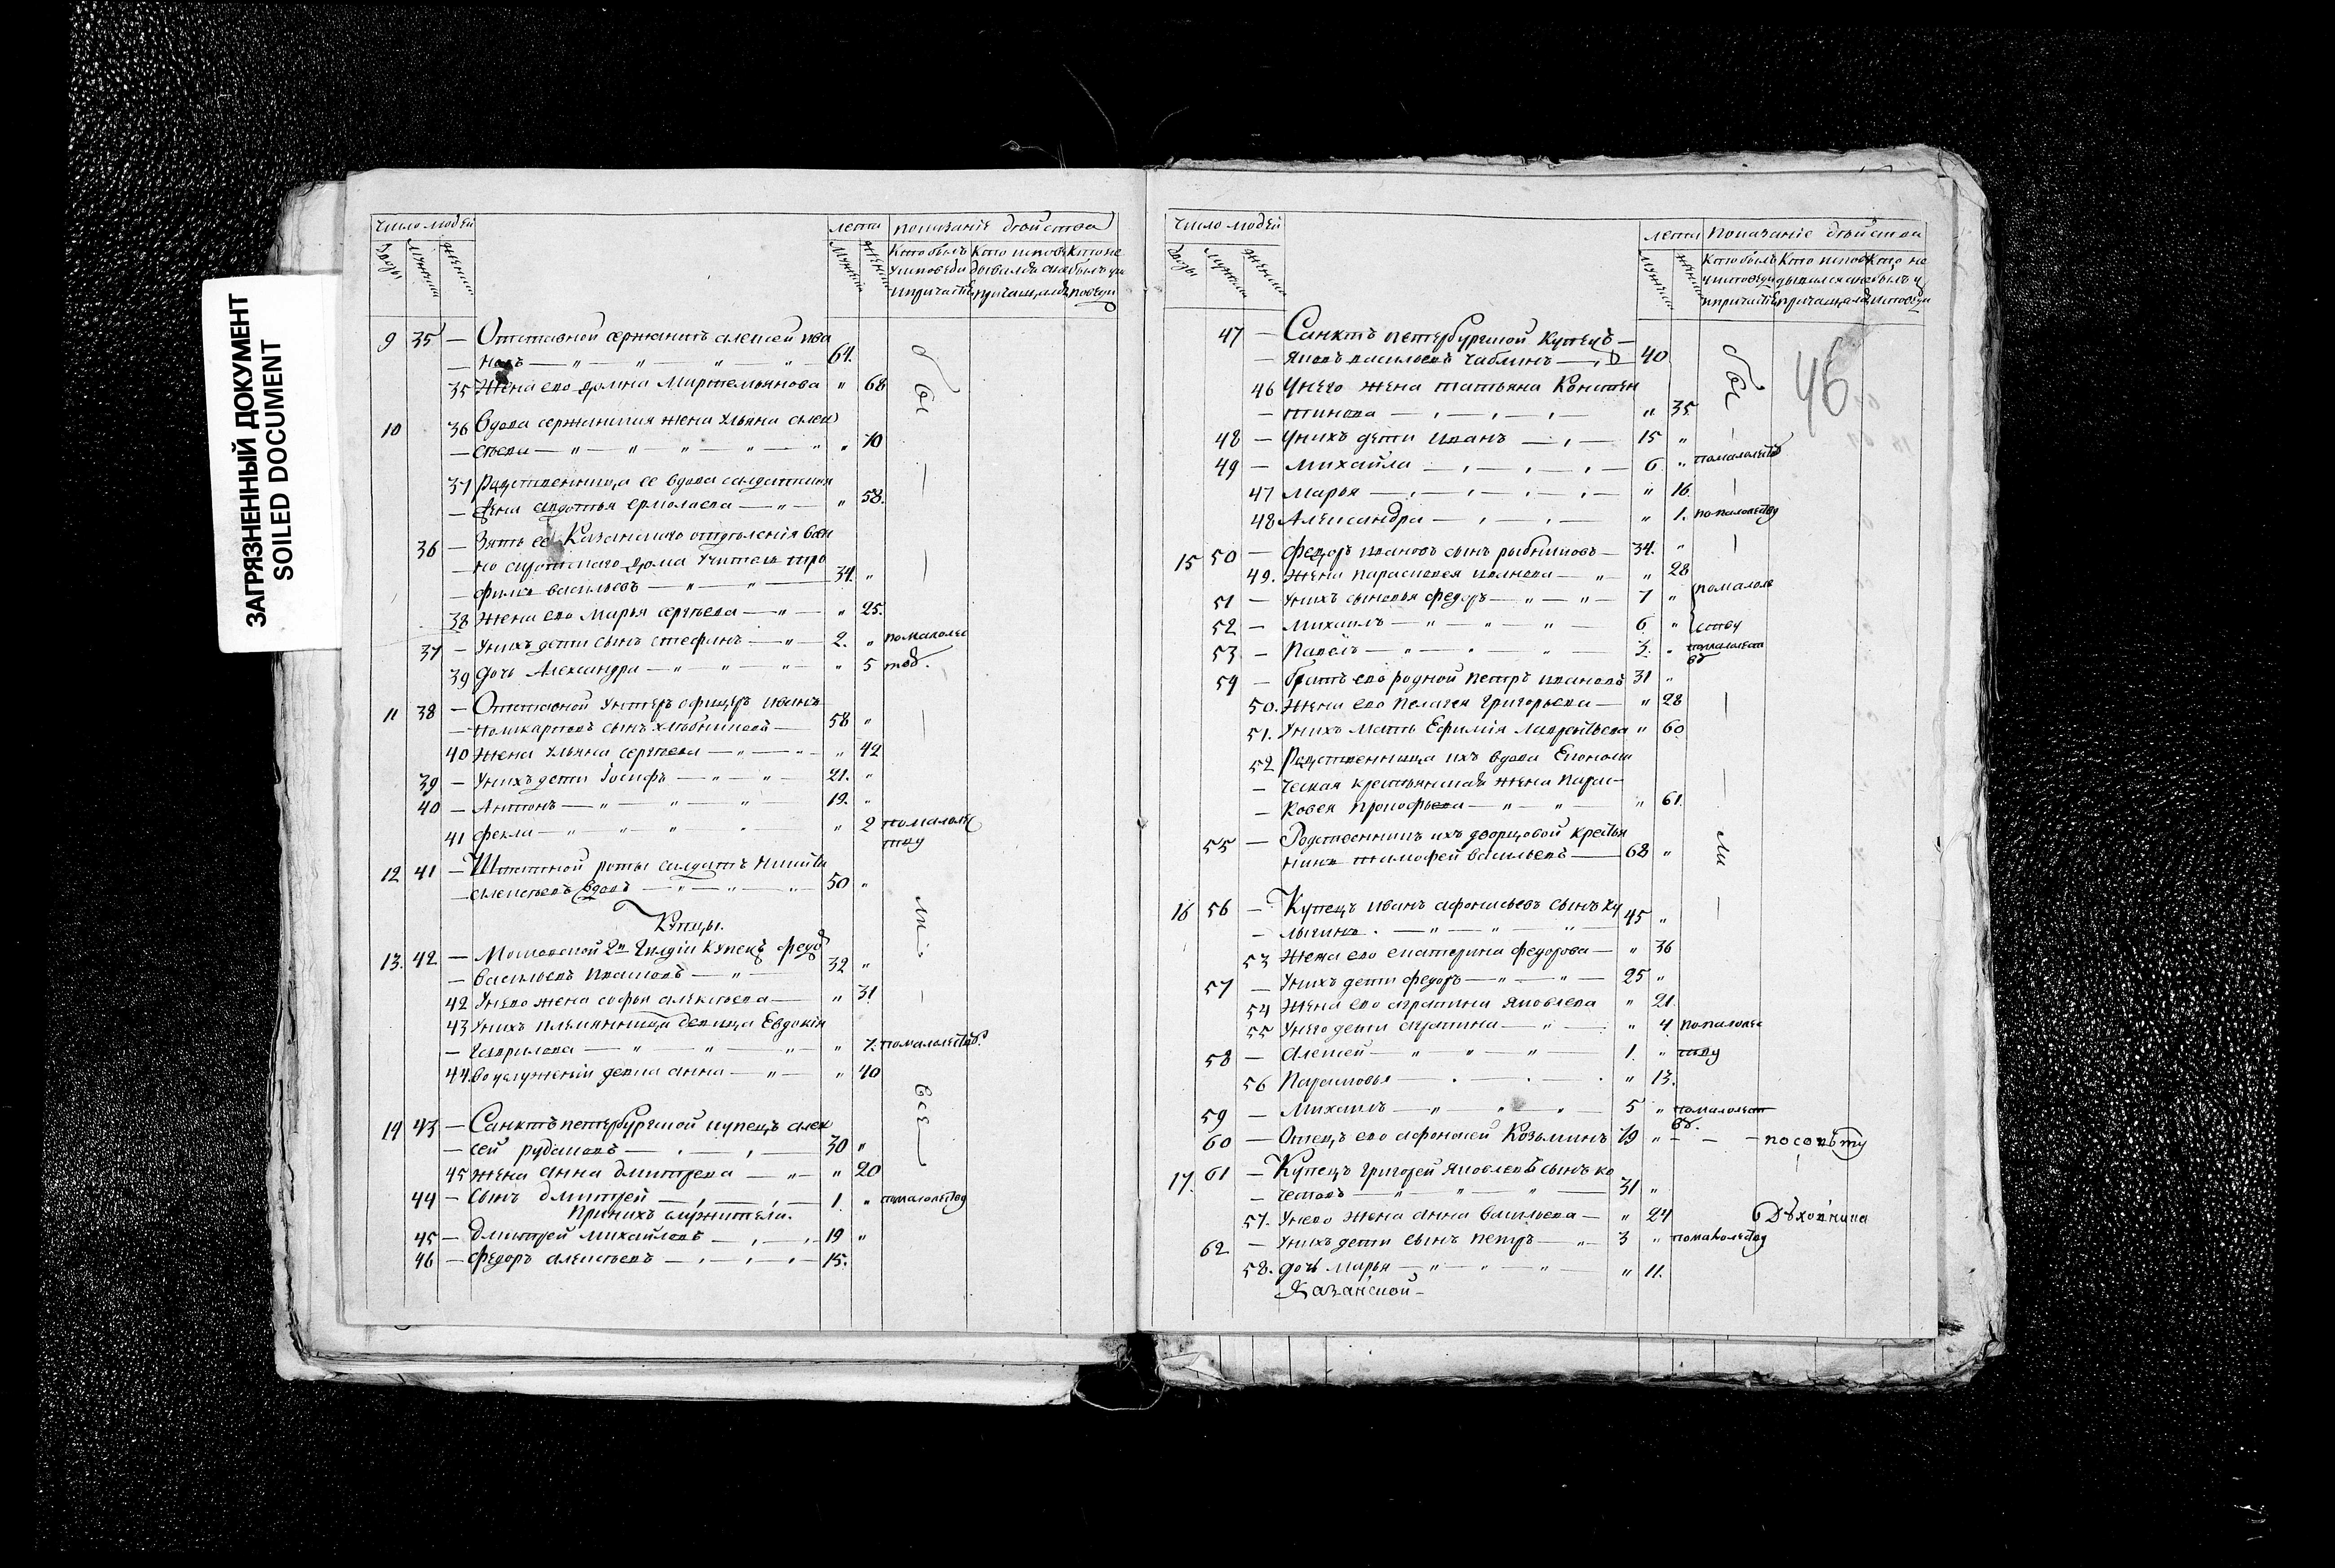 ЗАГРЯЗНЕННЫЙ ДОКУМЕНТ
SOILED DOCUMENT
число людей лета показание двиства
Кто былъ Кто испове Кто не
9 35 — Отставной сержантъ алексей ива
— новъ — " — " — " — " 64.
35 Жена его Мартемьянова " 68
10 36 Вдова сержанская жена ульяна алек
— сеева — " — " — " — " — " " 70
37 Родственница ее вдова салдатская
— жена авдотья ермолаева — " — " 58.
36 — Зять ее Казанскаго отделения вои
— но сиротскаго дома учитель тро
— фимъ васильевъ — " — " — 34. "
38 Жена его Марья сергеева — " — " 25.
37 — Унихъ дети сынъ стефанъ — " — 2. " помалолес
39 дочь Александра — " — " — " — " 5 тв.
11 38 — Отставной унтеръ офицеръ иванъ
— поликарповъ сынъ хлебниковъ — 58 "
40 Жена ульяна сергеева — " — " " 42
39 — Унихъ дети Iосифъ — " — " — 21. "
40 — Антонъ — " — " — " — 19. "
41 фекла — " — " — " — " " 2 помалоле
тву
12 41 — Штатной роты салдатъ никита
— алексеевъ вдовъ — " — " — " — 50 "
Купцы.
13. 42 — Московской 2й Гилдiи купецъ федоръ
— васильевъ — " — 32 "
42 Унево жена софья алексеева — " 31
43 Унихъ племянница девица Евдокiя
— Гаврилова — " — " — " — " 7. помалолетвъ.
44 во услуженiи девка анна — " — " 40
14 43 — Санктъпетербургской купецъ алек
— сей рудаковъ — 30 "
45 жена анна дмитрева — " — " 20
44 — сынъ дмитрей — 1. " помалолетву
При нихъ служители.
45 — дмитрей михайловъ — 19 "
46 — федоръ алексеевъ — 15.
бы
ли
все
число людей лета Показание двиства
46
47 — Санктъ петербургской купецъ —
— яковъ васильевъ Чаблинъ — 40
46 Унего жена татьяна Констан
— тинова — " 35
48 — Унихъ дети иванъ — 15 "
49 — михайла — 6 " помалолетв
47 марья — " 16.
48 Александра — " 1. помалолетву
15 50 — федоръ ивановъ сынъ рыбниковъ — 34. "
49. жена парасковея иванова — " — " 28
51 — Унихъ сыновья федоръ — " — " — 7 " помалоле
52 — михаилъ — " — " — " 6 " ству
53 — Павелъ — " — " — " 3. " помалолет
въ
54 — братъ его родной петръ ивановъ 31 "
50. Жена его пелагея григорьева — " 28
51. Унихъ мать Ефимiя лаврентьева " 60
52 Родственница ихъ вдова Економи
— ческая крестьянская жена парас-
— ковея прокофьева — " — " — " 61.
55 — Родственникъ ихъ дворцовой крестья
нинъ тимофей васильевъ — 68 "
16 56 — Купецъ иванъ афонасьевъ сынъ ку
— лыгинъ — " — " — " 45 "
53 Жена его екатерина федорова — " 36
57 — Унихъ дети федоръ — " — " — 25 "
54 Жена его аграпина яковлева " 21
55 Унего дети аграпина — " — " 4 помалолес
58 — алексей — " — " — " — 1. " тву
56 Парасковья — " 13.
59 — михаилъ — " — " — " 5 " помалолет
въ.
60 — Отецъ его афонасей Козьминъ 79 " — — посовѣту
17. 61 — Купецъ григорей яковлевъ сынъ ко
— 31 "
57. Унево жена анна васильева — " 24 Дѣховника
62 — Унихъ дети сынъ петръ — " — 3 " помалолетву
58. дочь марья — " — " — " — " 11.
Казанской —
бы
ли